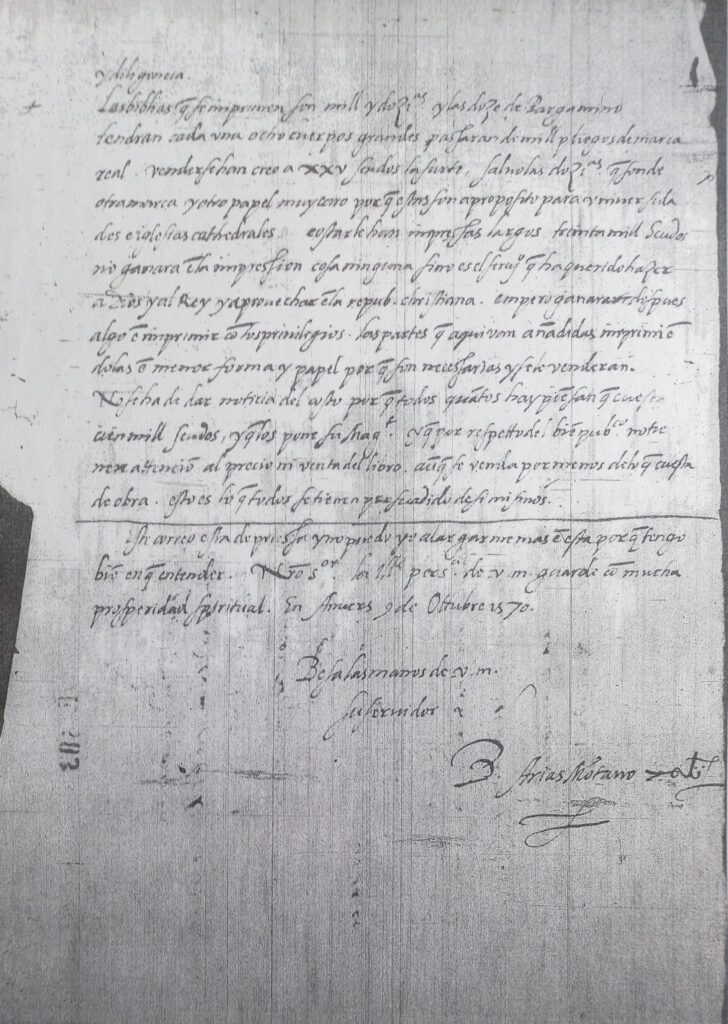 y diligencia.
Las biblias q̃ se imprimen son mill y dozi.as y las doze de Pargamino
tendran cada una ocho cuerpos grandes passaran de mill pliegos de marca
real. vendersehan creo a xxv scudos la suerte, salvo las dozi.as q̃ son de
otra marca y otro papel muy caro por q̃ estas son a proposito para universida
des e iglesias cathedrales. costarlehan impressas largos treinta mill scudos
no ganara ẽ la impression cosa ninguna sino es el servi.o q̃ ha querido hazer
a Dios y al Rey y aprovechar ẽ la repub. christiana. empero ganara despues
algo ẽ imprimir cõ los privilegios. las partes q̃ aqui van añadidas imprimiẽ
dolas ẽ menor forma y papel por q̃ son necessarias y se le venderan.
No se ha de dar noticia del costo por q̃ todos quãtos hay piẽsan q̃ cuesta
cien mill scudos, y q̃ los pone su Mag.t y q̃ por respetto del biẽ pub.co no tie
nen attenciõ al precio ni venta del libro. aũq̃ se venda por menos de lo q̃ cuesta
de obra. esto es lo q̃ todos se tienen persuadido de si mismos.
Este correo esta de priessa y no puedo yo alargarme mas ẽ esta por q̃ tengo
biẽ en q̃ entender. Nrõ s.or la ill.e pers.a de v.m. guarde cõ mucha
prosperidad spiritual. En Anvers 9 de Ottubre 1570.
Besa las manos de v.m.
su servidor
B. Arias Mõtano